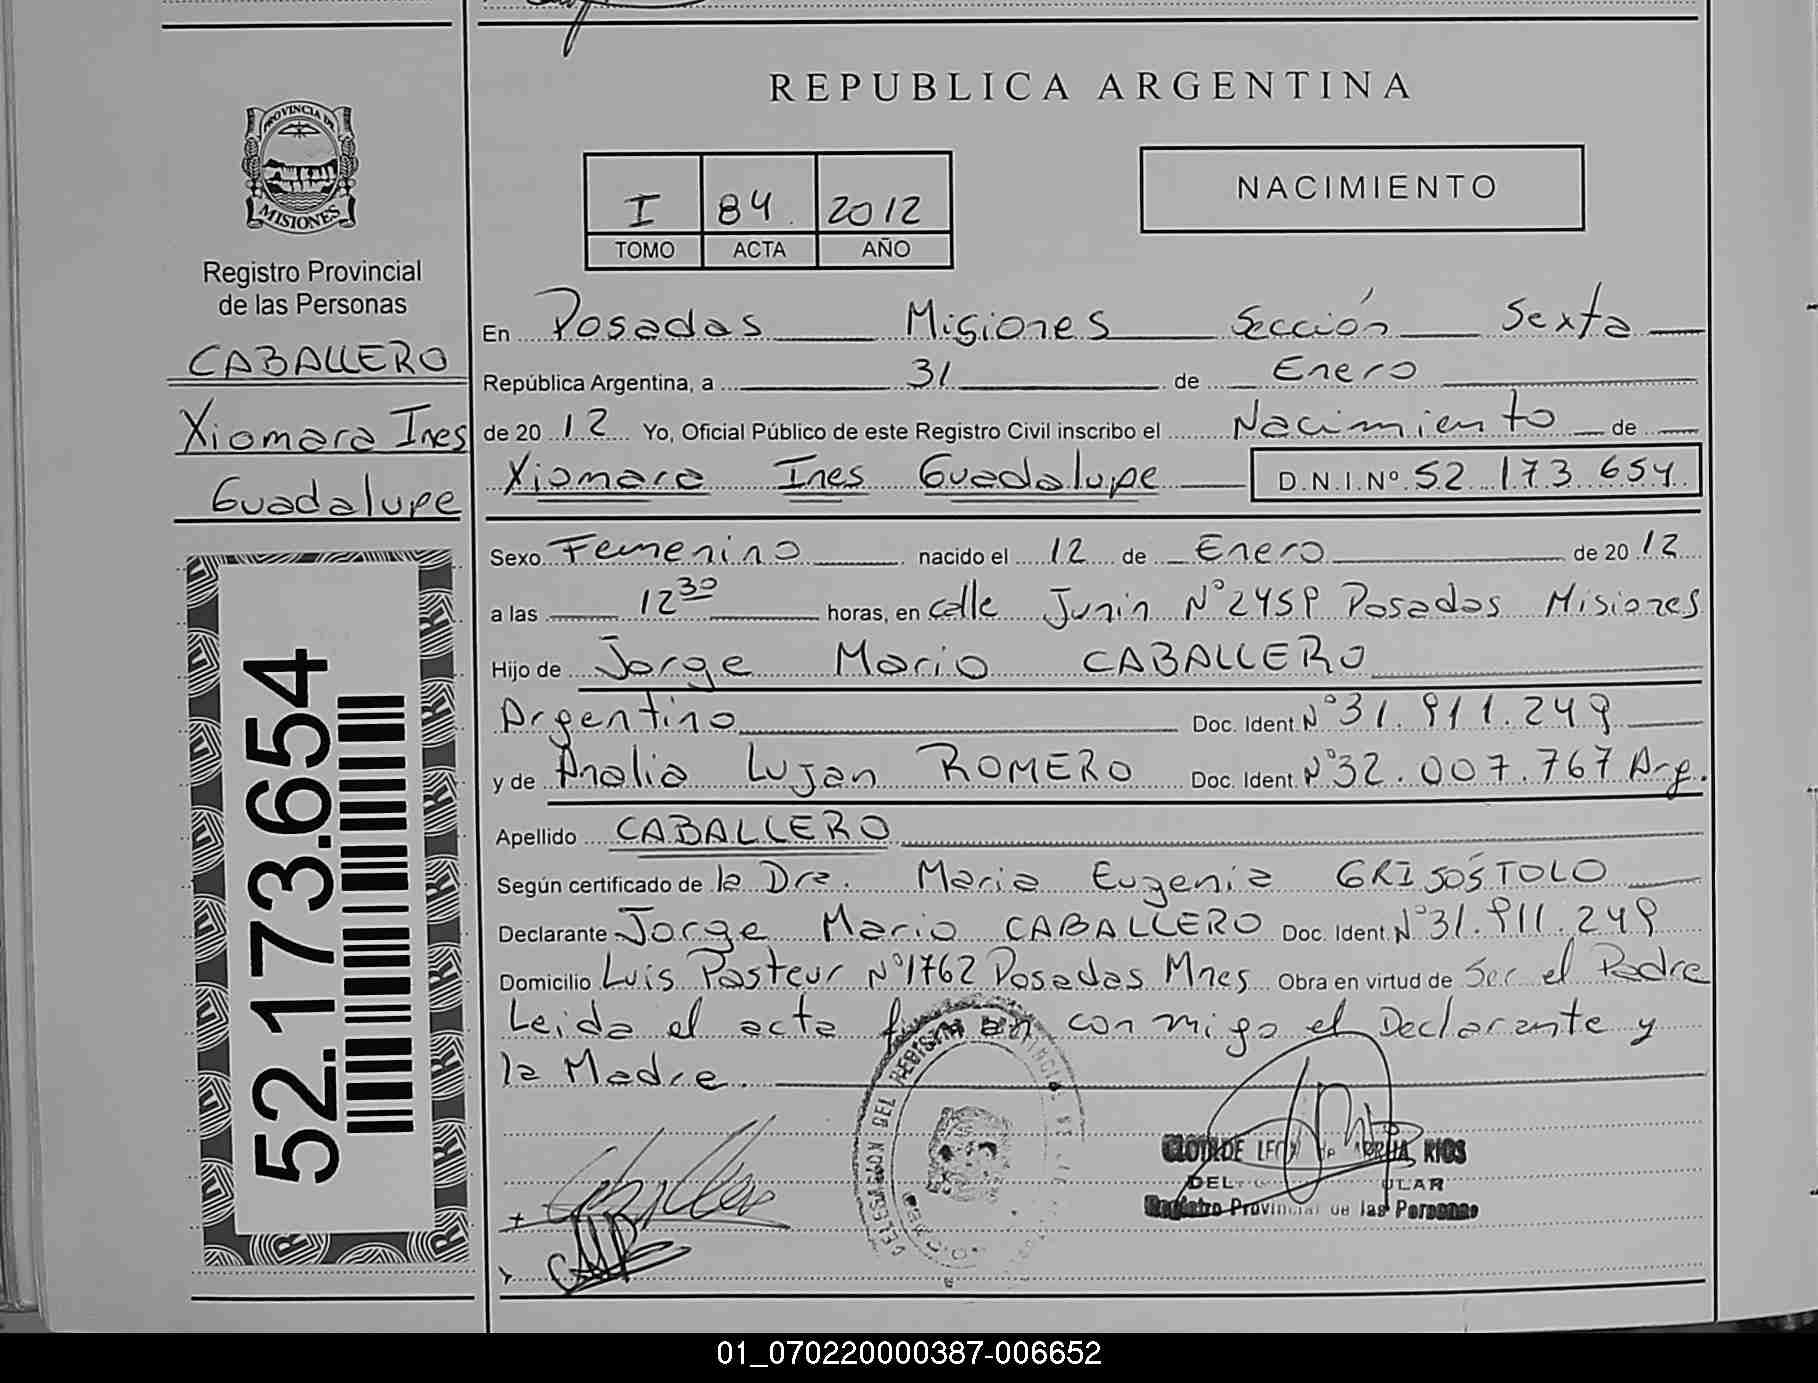 REPUBLICA ARGENTINA
PROVINCIA DE
MISIONES
Registro Provincial
de las Personas
CABALLERO
Xiomara Ines
Guadalupe
52.173.654
I 84 2012
TOMO ACTA AÑO
NACIMIENTO
En Posadas Misiones Sección Sexta
República Argentina, a 31 de Enero
de 20 12 Yo, Oficial Público de este Registro Civil inscribo el Nacimiento de
Xiomara Ines Guadalupe D.N.I.Nº 52 173 654
Sexo Femenino nacido el 12 de Enero de 20 12
a las 12 30 horas, en calle Junin Nº 2459 Posadas Misiones
Hijo de Jorge Mario CABALLERO
Argentino Doc. Ident. Nº 31.911.249
y de Analia Lujan ROMERO Doc. Ident. Nº 32.007.767 Arg.
Apellido CABALLERO
Según certificado de la Dra. Maria Eugenia GRISÓSTOLO
Declarante Jorge Mario CABALLERO Doc. Ident. Nº 31.911.249
Domicilio Luis Pasteur Nº 1762 Posadas Mnes Obra en virtud de Ser el Padre
Leida el acta firman conmigo el Declarante y
la Madre.
DELEGACION DEL REGISTRO PROVINCIAL DE
CLOTILDE RIOS
Registro Provincial de las Personas
01_070220000387-006652